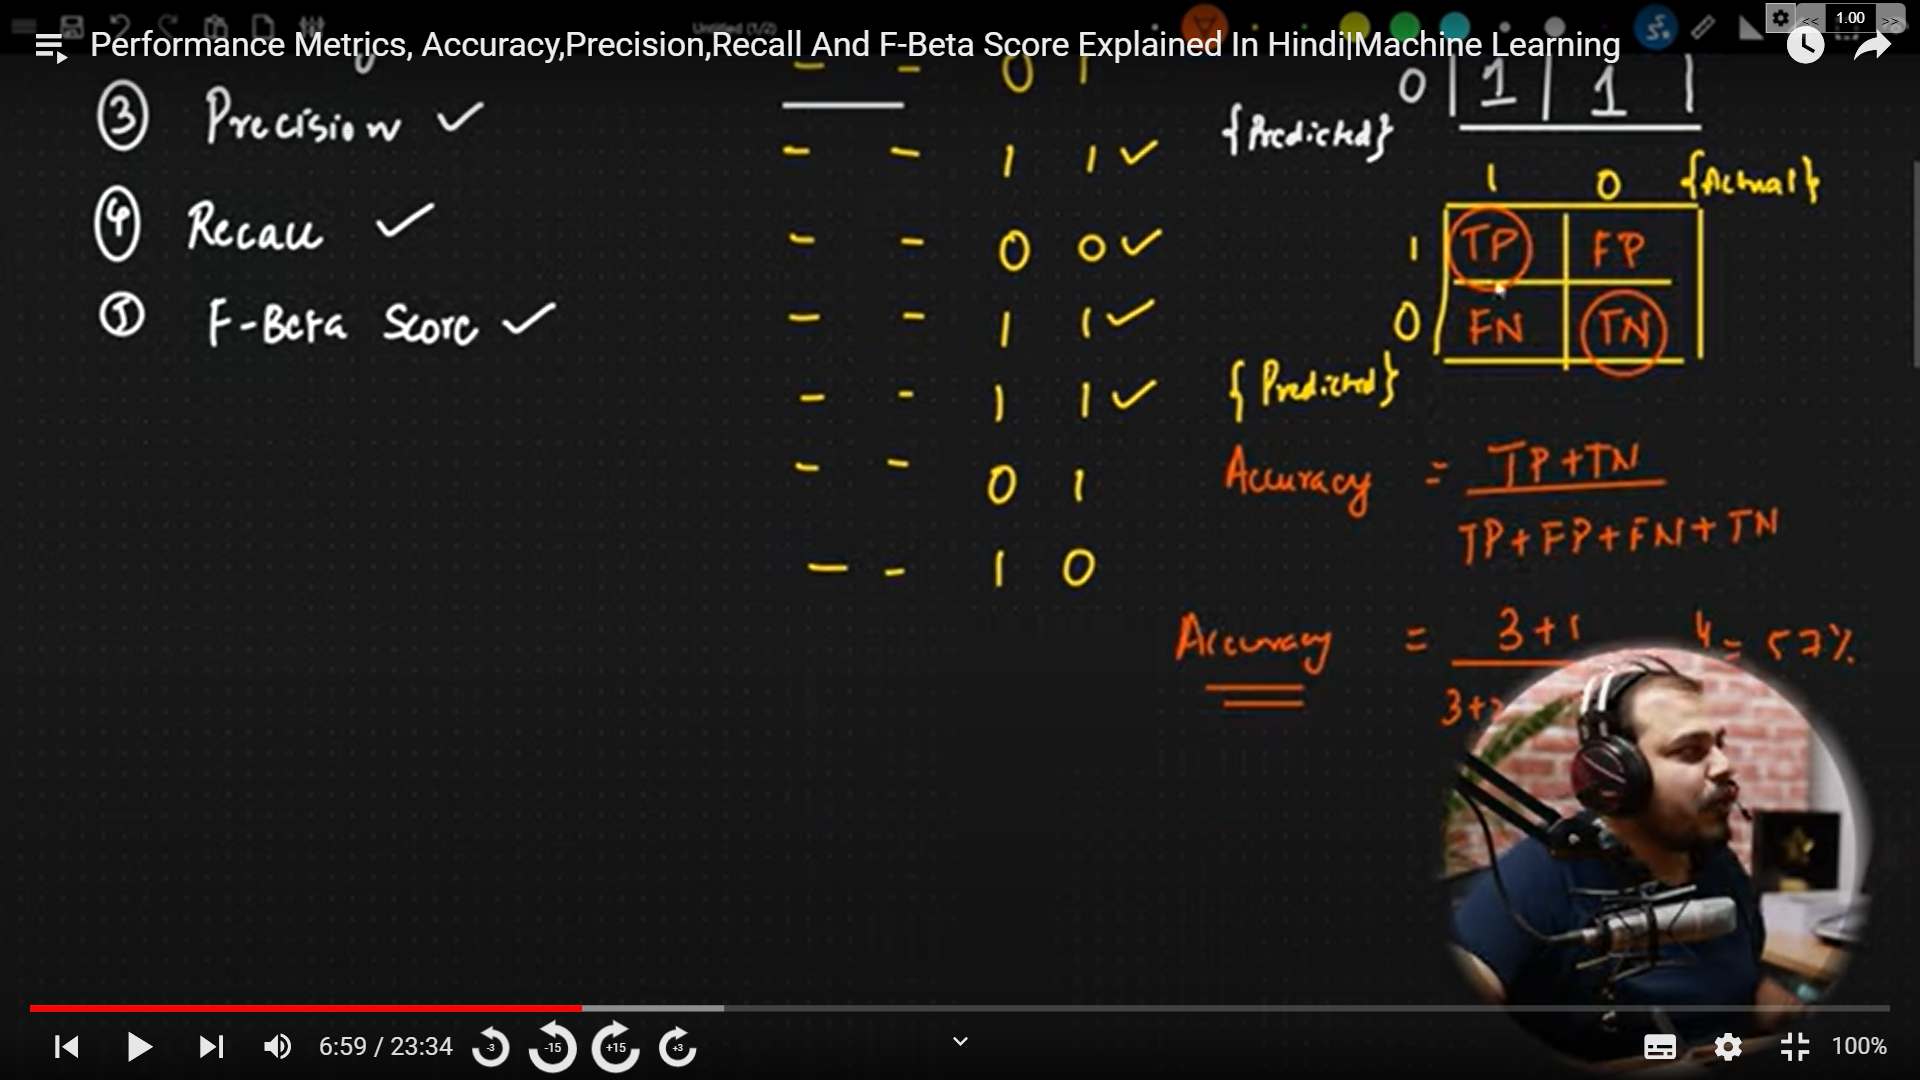 Untitled (1/2)
<< 1.00 >>
Performance Metrics, Accuracy,Precision,Recall And F-Beta Score Explained In Hindi|Machine Learning
③ Precision ✓
④ Recall ✓
⑤ F-Beta Score ✓
- - 0 1
- - 1 1 ✓
- - 0 0 ✓
- - 1 1 ✓
- - 1 1 ✓
- - 0 1
- - 1 0
0 | 1 | 1 |
{Predicted}
1 0 {Actual}
1 TP FP
0 FN TN
{Predicted}
Accuracy = TP+TN
TP+FP+FN+TN
Accuracy = 3+1 4 = 57%
3+
6:59 / 23:34 -3 -15 +15 +3 100%